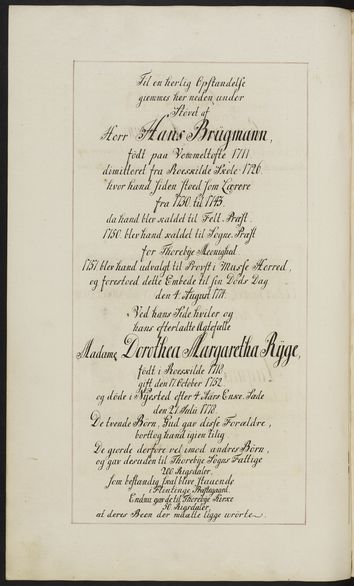 Til en herlig Opstandelse
giemmes her neden under
Støvet af
Herr Hans Brügmann,
født paa Vemmeltofte 1711
dimitteret fra Roeskilde Skole 1726.
hvor hand siden stoed som Lærere
fra 1730 til 1743.
da hand blev kaldet til Felt-Præst.
1750. blev hand kaldet til Sogne-Præst
for Thorebye Meenighed
1757 blev hand udvalgt til Provst i Musse Herred,
og forestoed dette Embede til sin Døds Dag
den 4. August 1774.
Ved hans Side hviler og
hans efterladte Ægtefælle
Madame Dorothea Margaretha Ryge,
født i Roeskilde 1718
gift den 17. October 1752
og døde i Nysted efter 4. Aars Enke-Sæde
den 27 Julii 1778.
De tvende Børn, Gud gav disse Forældre,
borttog hand igien tilig
De giorde derfore vel imod andres Børn,
og gav desuden til Thorebye Sogns Fattige
200 Rigsdaler,
som bestandig skal blive staaende
i Flintinge Præstegaard.
Endnu gav de til Thorebye Kirke
50 Rigsdaler,
at deres Been der maatte ligge urørte.